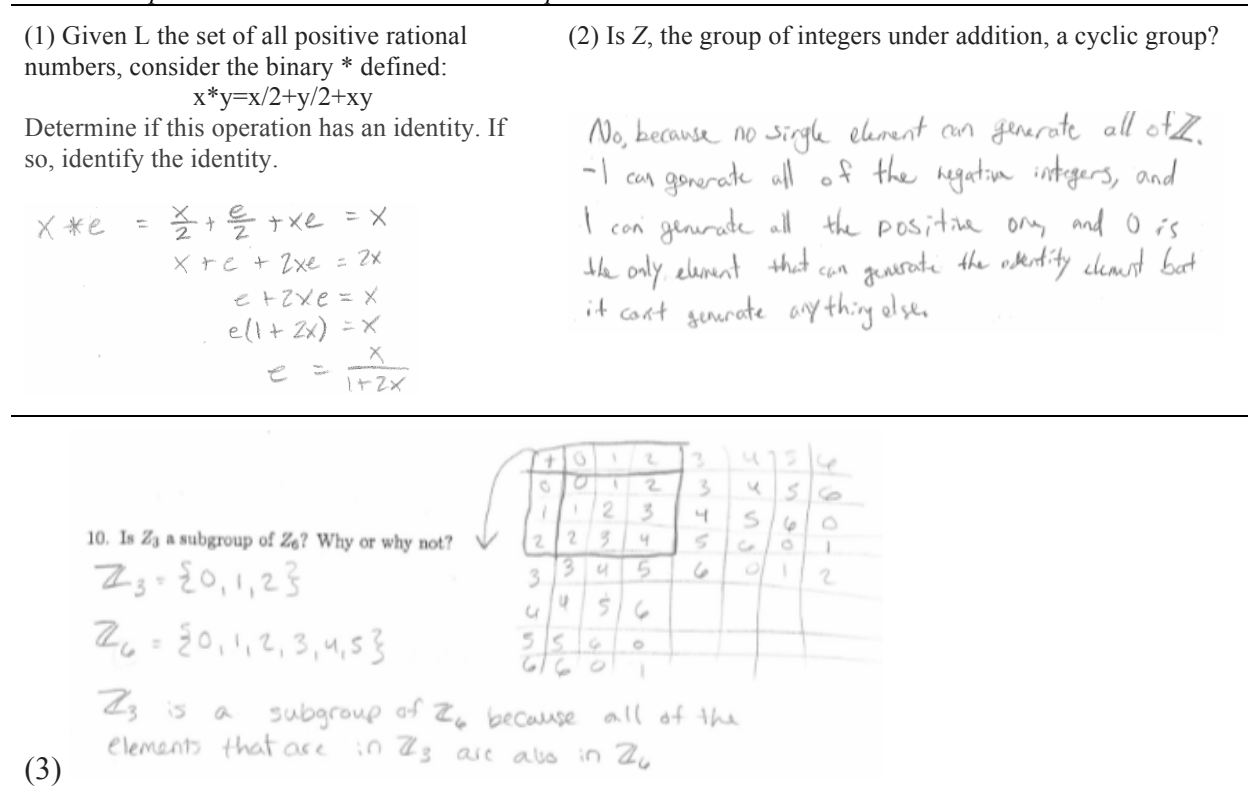 (1) Given L the set of all positive rational
numbers, consider the binary * defined:
x*y=x/2+y/2+xy
Determine if this operation has an identity. If
so, identify the identity.
x * e = x/2 + e/2 + xe = x
x + e + 2xe = 2x
e + 2xe = x
e(1 + 2x) = x
e = x/(1+2x)
(2) Is Z, the group of integers under addition, a cyclic group?
No, because no single element can generate all of ℤ.
-1 can generate all of the negative integers, and
1 can generate all the positive ones, and 0 is
the only element that can generate the identity element but
it can't generate anything else.
10. Is Z₃ a subgroup of Z₆? Why or why not?
ℤ₃ = {0, 1, 2}
ℤ₆ = {0, 1, 2, 3, 4, 5}
+ 0 1 2 3 4 5 6
0 0 1 2 3 4 5 6
1 1 2 3 4 5 6 0
2 2 3 4 5 6 0 1
3 3 4 5 6 0 1 2
4 4 5 6
5 5 6 0
6 6 0 1
ℤ₃ is a subgroup of ℤ₆ because all of the
elements that are in ℤ₃ are also in ℤ₆
(3)